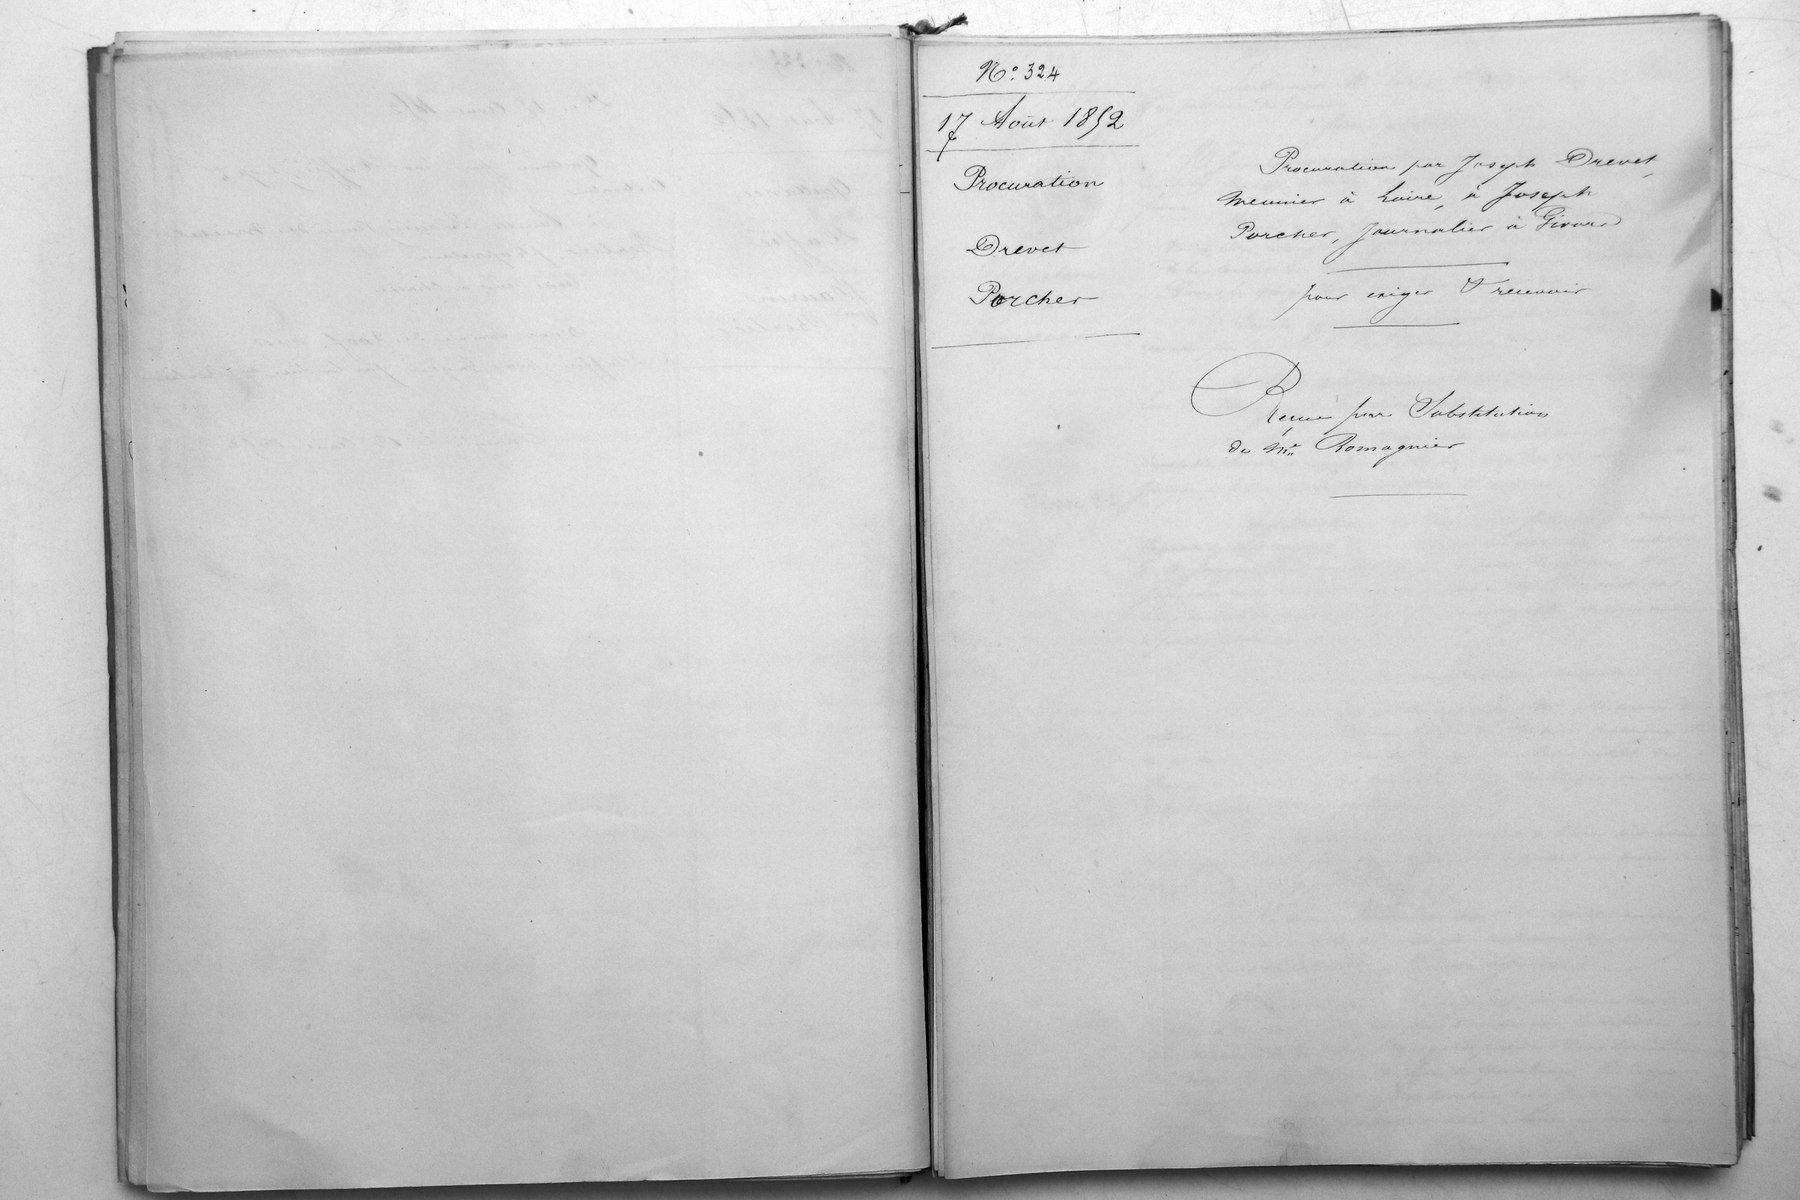 N.° 324
17 Août 1852
Procuration
Drevet
Porcher
Procuration par Joseph Drevet,
meunier à Loire, à Joseph
Porcher, journalier à Givors
pour exiger & recevoir
Reçue par Substitution
de Me Romagnier